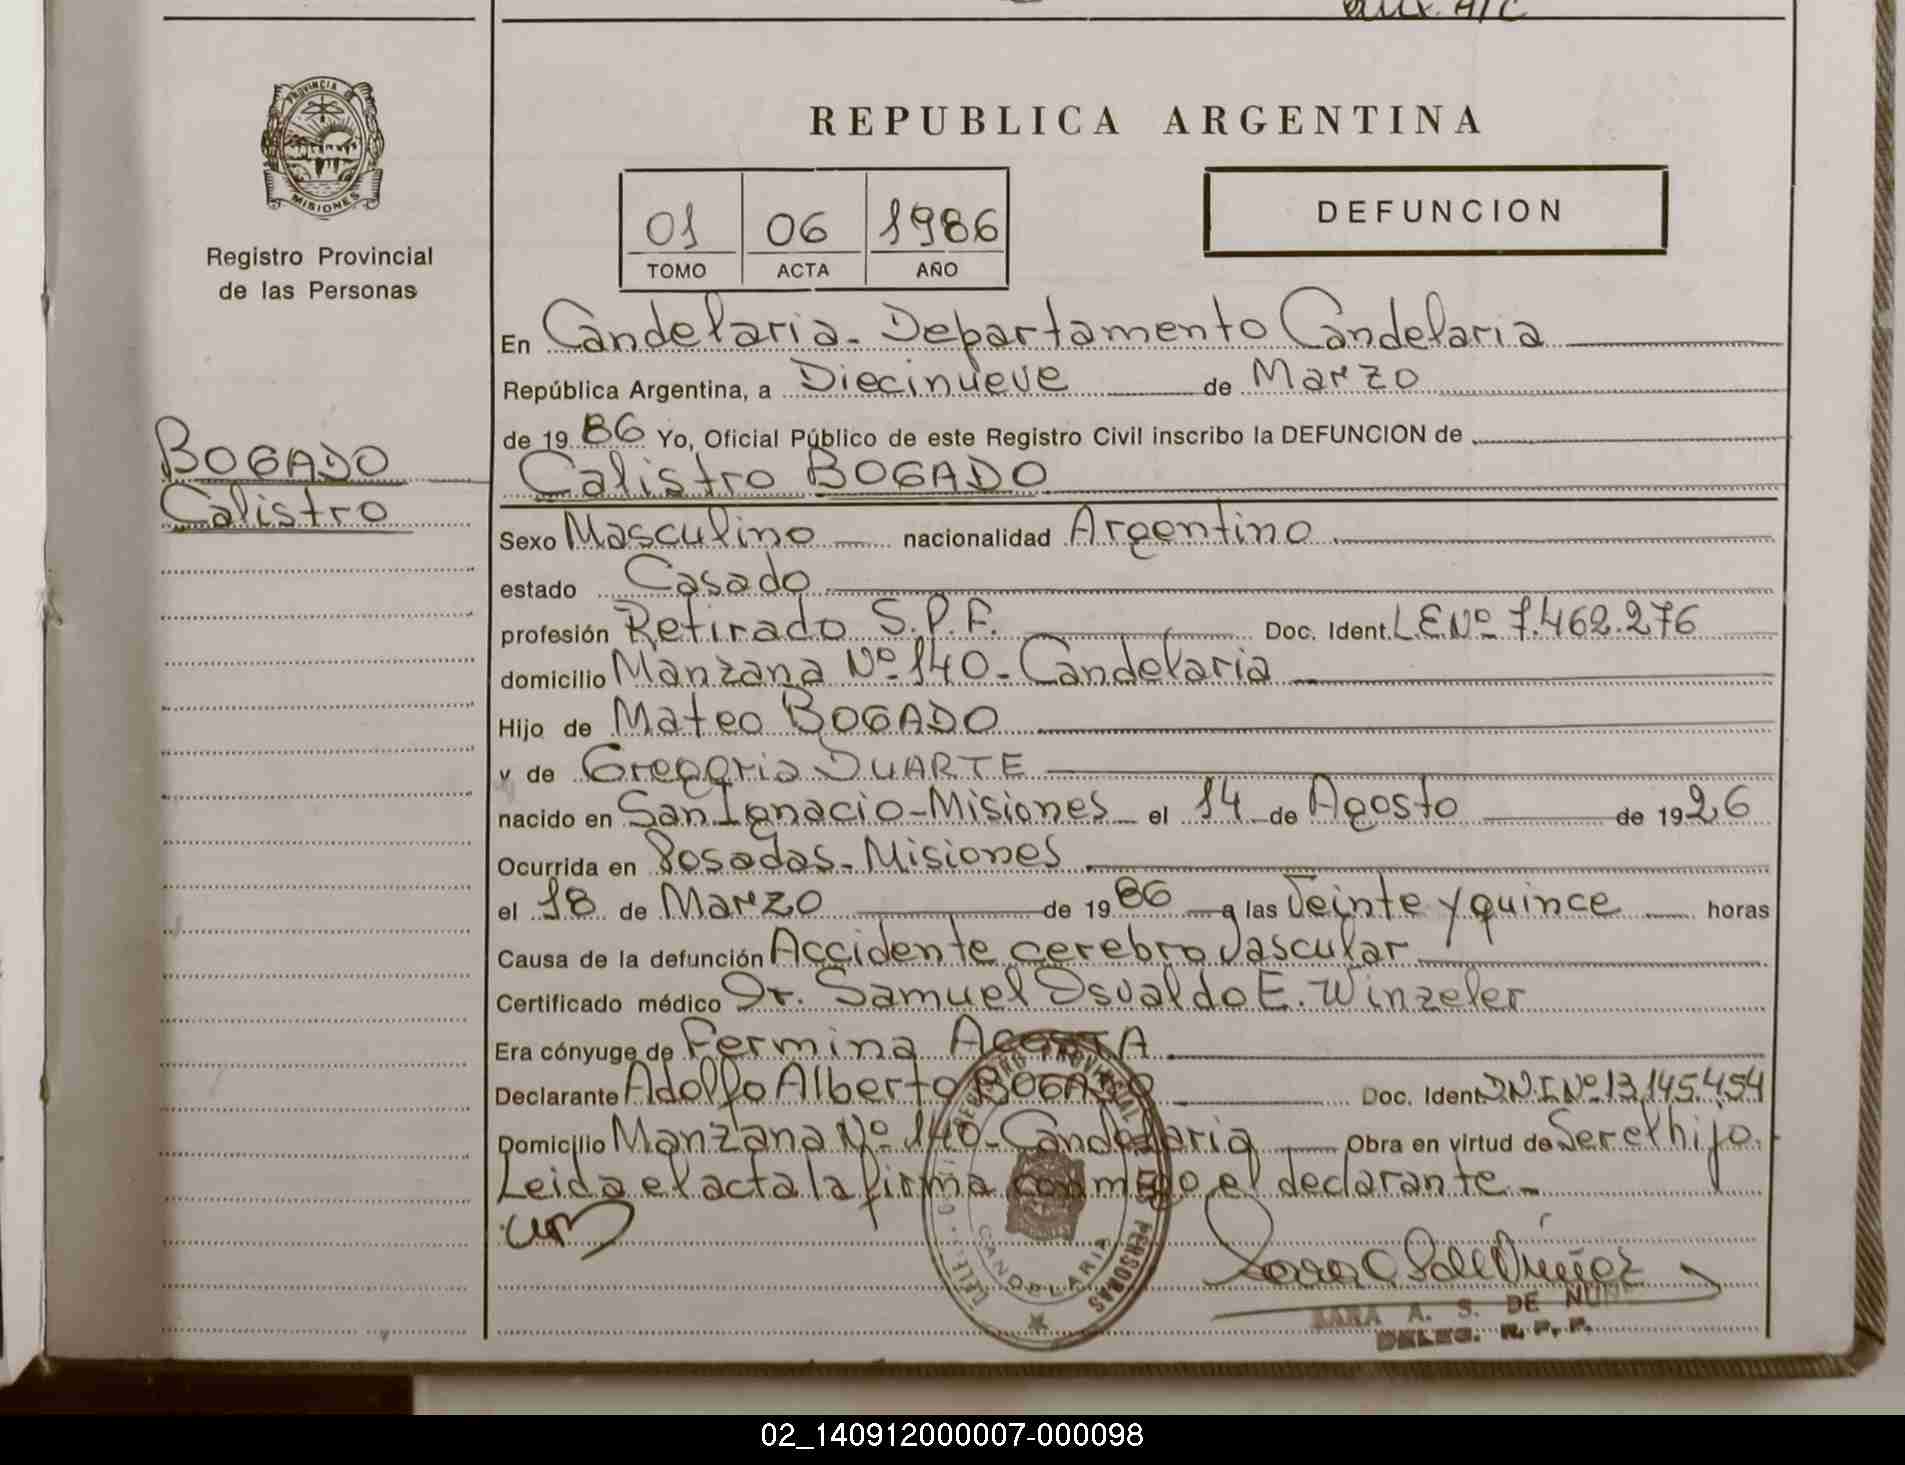 Aux. A/C
PROVINCIA DE
MISIONES
Registro Provincial
de las Personas
BOGADO
Calistro
REPUBLICA ARGENTINA
01 06 1986
TOMO ACTA AÑO
DEFUNCION
En Candelaria - Departamento Candelaria
República Argentina, a Diecinueve de Marzo
de 19 86 Yo, Oficial Público de este Registro Civil inscribo la DEFUNCION de
Calistro BOGADO
Sexo Masculino nacionalidad Argentino
estado Casado
profesión Retirado S.P.F. Doc. Ident. L.E.Nº 7.462.276
domicilio Manzana Nº 140 - Candelaria
Hijo de Mateo BOGADO
y de Gregoria DUARTE
nacido en San Ignacio - Misiones el 14 de Agosto de 1926
Ocurrida en Posadas - Misiones
el 18 de Marzo de 1986 a las Veinte y quince horas
Causa de la defunción Accidente cerebro vascular
Certificado médico Dr. Samuel Osvaldo E. Winzeler
Era cónyuge de Fermina ACOSTA
Declarante Adolfo Alberto BOGADO Doc. Ident D.N.I.Nº 13.145.454
Domicilio Manzana Nº 140 - Candelaria Obra en virtud de Ser el hijo.
Leida el acta la firma conmigo el declarante.-
REGISTRO PROVINCIAL DE LAS PERSONAS
CANDELARIA
SARA A. S. DE NUÑEZ
DELEG. R. P. P.
02_140912000007-000098